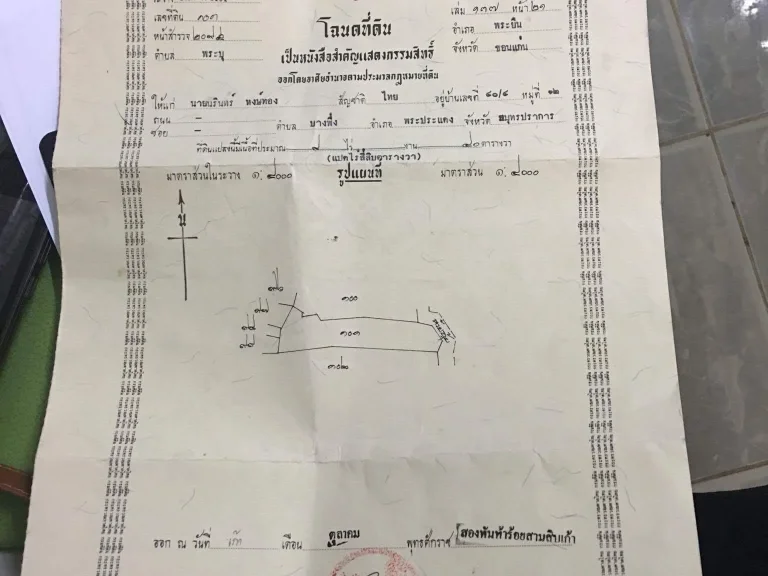 เลขที่ดิน ๑๐๑ โฉนดที่ดิน เล่ม ๑๓๗ หน้า ๒๑
หน้าสำรวจ อำเภอ พระยืน
ตำบล พระบุ เป็นหนังสือสำคัญแสดงกรรมสิทธิ์ จังหวัด ขอนแก่น
ออกโดยอาศัยอำนาจตามประมวลกฎหมายที่ดิน
ให้แก่ หงษ์ทอง สัญชาติ ไทย อยู่บ้านเลขที่ ๘๐/๔ หมู่ที่ ๑๒
ถนน – ตำบล บางพึ่ง อำเภอ พระประแดง จังหวัด สมุทรปราการ
ซอย –
ที่ดินแปลงนี้มีเนื้อที่ประมาณ ๘ ไร่ – งาน ๔๐ ตารางวา
(แปดไร่สี่สิบตารางวา)
มาตราส่วนในระวาง ๑: ๔๐๐๐ รูปแผนที่ มาตราส่วน ๑: ๔๐๐๐
น
๑๐๐
๑๐๑
๑๐๒
ออก ณ วันที่ เก้า เดือน ตุลาคม พุทธศักราช สองพันห้าร้อยสามสิบเก้า